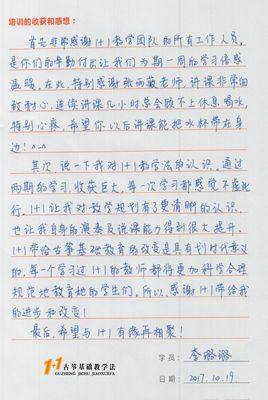 培训的收获和感想:
首先非常感谢1+1教学团队的所有工作人员,
是你们的辛勤付出让我们为期一周的学习倍感
温暖。在此,特别感谢张雨薇老师,讲课非常细
致耐心,连续讲课几小时总会顾不上休息喝水,
特别心疼,希望你以后讲课能把水杯带在身
边!^-^
其次,说一下我对1+1教学法的认识。通过
两期的学习,收获巨大,每一次学习都感觉不虚此
行。1+1让我对教学规划有了更清晰的认识,
也让我自身的演奏及说课能力得到很大提升。
1+1带给古筝基础教育的改变是具有划时代意义
的,每一个学习过1+1的教师都将更加科学合理
规范地教育她的学生们。所以,感谢1+1带给我
的进步和改变!
最后,希望与1+1有缘再相聚!
1+1 古筝基础教学法
GUZHENG JICHU JIAOXUEFA
学员: 李璐璐
日期: 2017.10.19